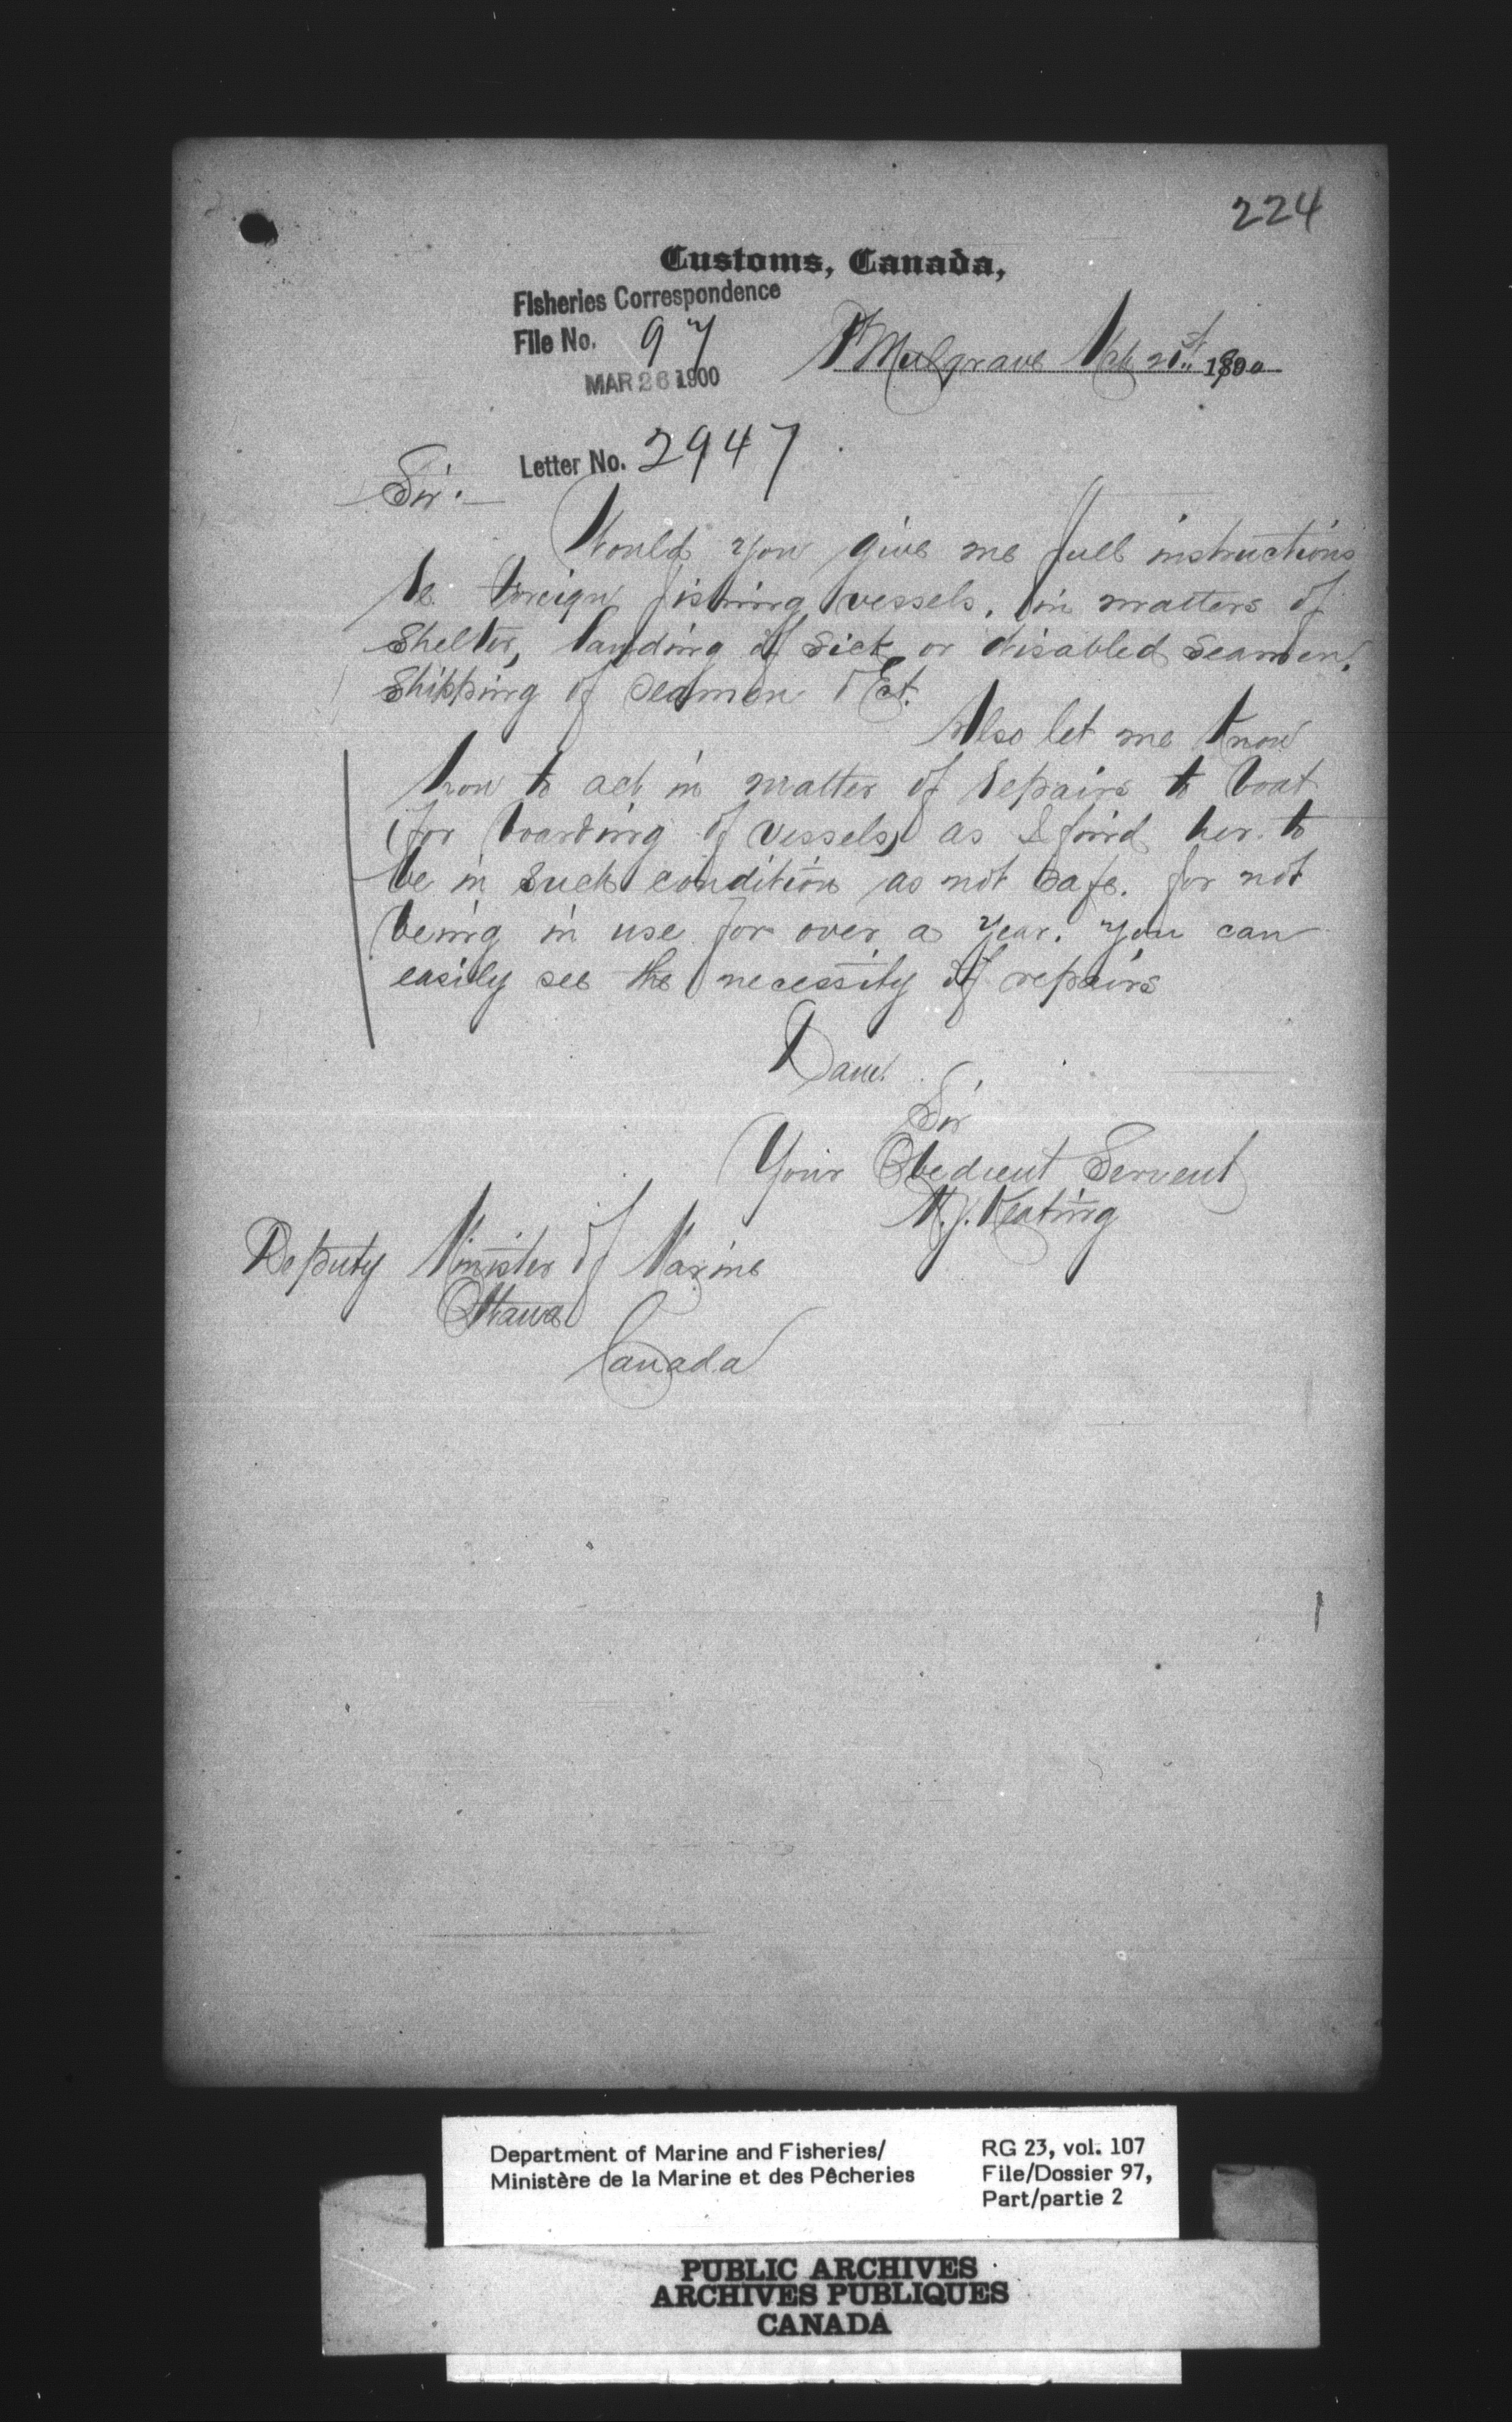 224
Customs, Canada,
Fisheries Correspondence
File No. 97
MAR 26 1900
Pt Mulgrave Mch 21st 1900
Letter No. 2947
Sir:—
Would you give me full instructions
re foreign fishing vessels. in matters of
shelter, landing of sick or disabled seamen.
shipping of seamen & Ect.
Also let me know
how to act in matter of repairs to boat
(for boarding of vessels) as I find her to
be in such condition as not safe. for not
being in use for over a year. you can
easily see the necessity of repairs
I am.
Sir
Your Obedient Servent
M. J. Keating
Deputy Minister of Marine
Ottawa
Canada
Department of Marine and Fisheries/
Ministère de la Marine et des Pêcheries
RG 23, vol. 107
File/Dossier 97,
Part/partie 2
PUBLIC ARCHIVES
ARCHIVES PUBLIQUES
CANADA